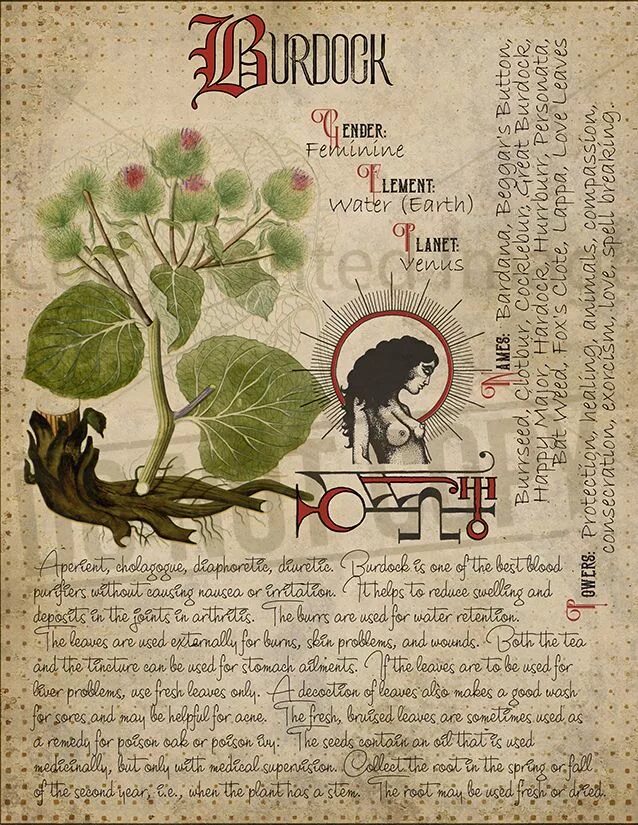 BURDOCK
GENDER:
Feminine
ELEMENT:
Water (Earth)
PLANET:
Venus
NAMES: Bardana, Beggar's Button,
Burrseed, Clotbur, Cocklebur, Great Burdock,
Happy Major, Hardock, Hurrburr, Personata,
Bat Weed, Fox's Clote, Lappa, Love Leaves
POWERS: Protection, healing, animals, compassion,
consecration, exorcism, love, spell breaking.
Aperient, cholagogue, diaphoretic, diuretic. Burdock is one of the best blood
purifiers without causing nausea or irritation. It helps to reduce swelling and
deposits in the joints in arthritis. The burrs are used for water retention.
The leaves are used externally for burns, skin problems, and wounds. Both the tea
and the tincture can be used for stomach ailments. If the leaves are to be used for
liver problems, use fresh leaves only. A decoction of leaves also makes a good wash
for sores and may be helpful for acne. The fresh, bruised leaves are sometimes used as
a remedy for poison oak or poison ivy. The seeds contain an oil that is used
medicinally, but only with medical supervision. Collect the root in the spring or fall
of the second year, i.e., when the plant has a stem. The root may be used fresh or dried.